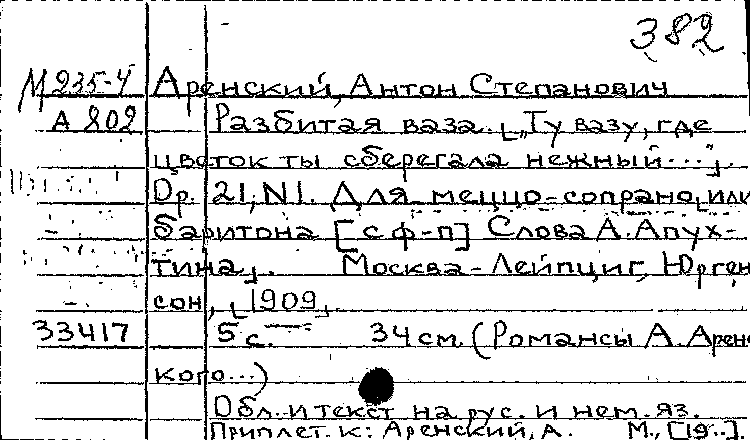 382
М235-4 Аренский, Антон Степанович
А 802 Разбитая ваза. [„Ту вазу, где
цветок ты сберегала нежный..."].
Ор. 21, N1. Для меццо-сопрано [или
баритона [с ф-п] Слова А. Апух-
тина]. Москва-Лейпциг, Юрген
сон, [1909].
33417 5 с. 34 см. (Романсы А. Арен
кого...)
Обл. и текст на рус. и нем. яз.
Приплет. к: Аренский, А. М., [19..].